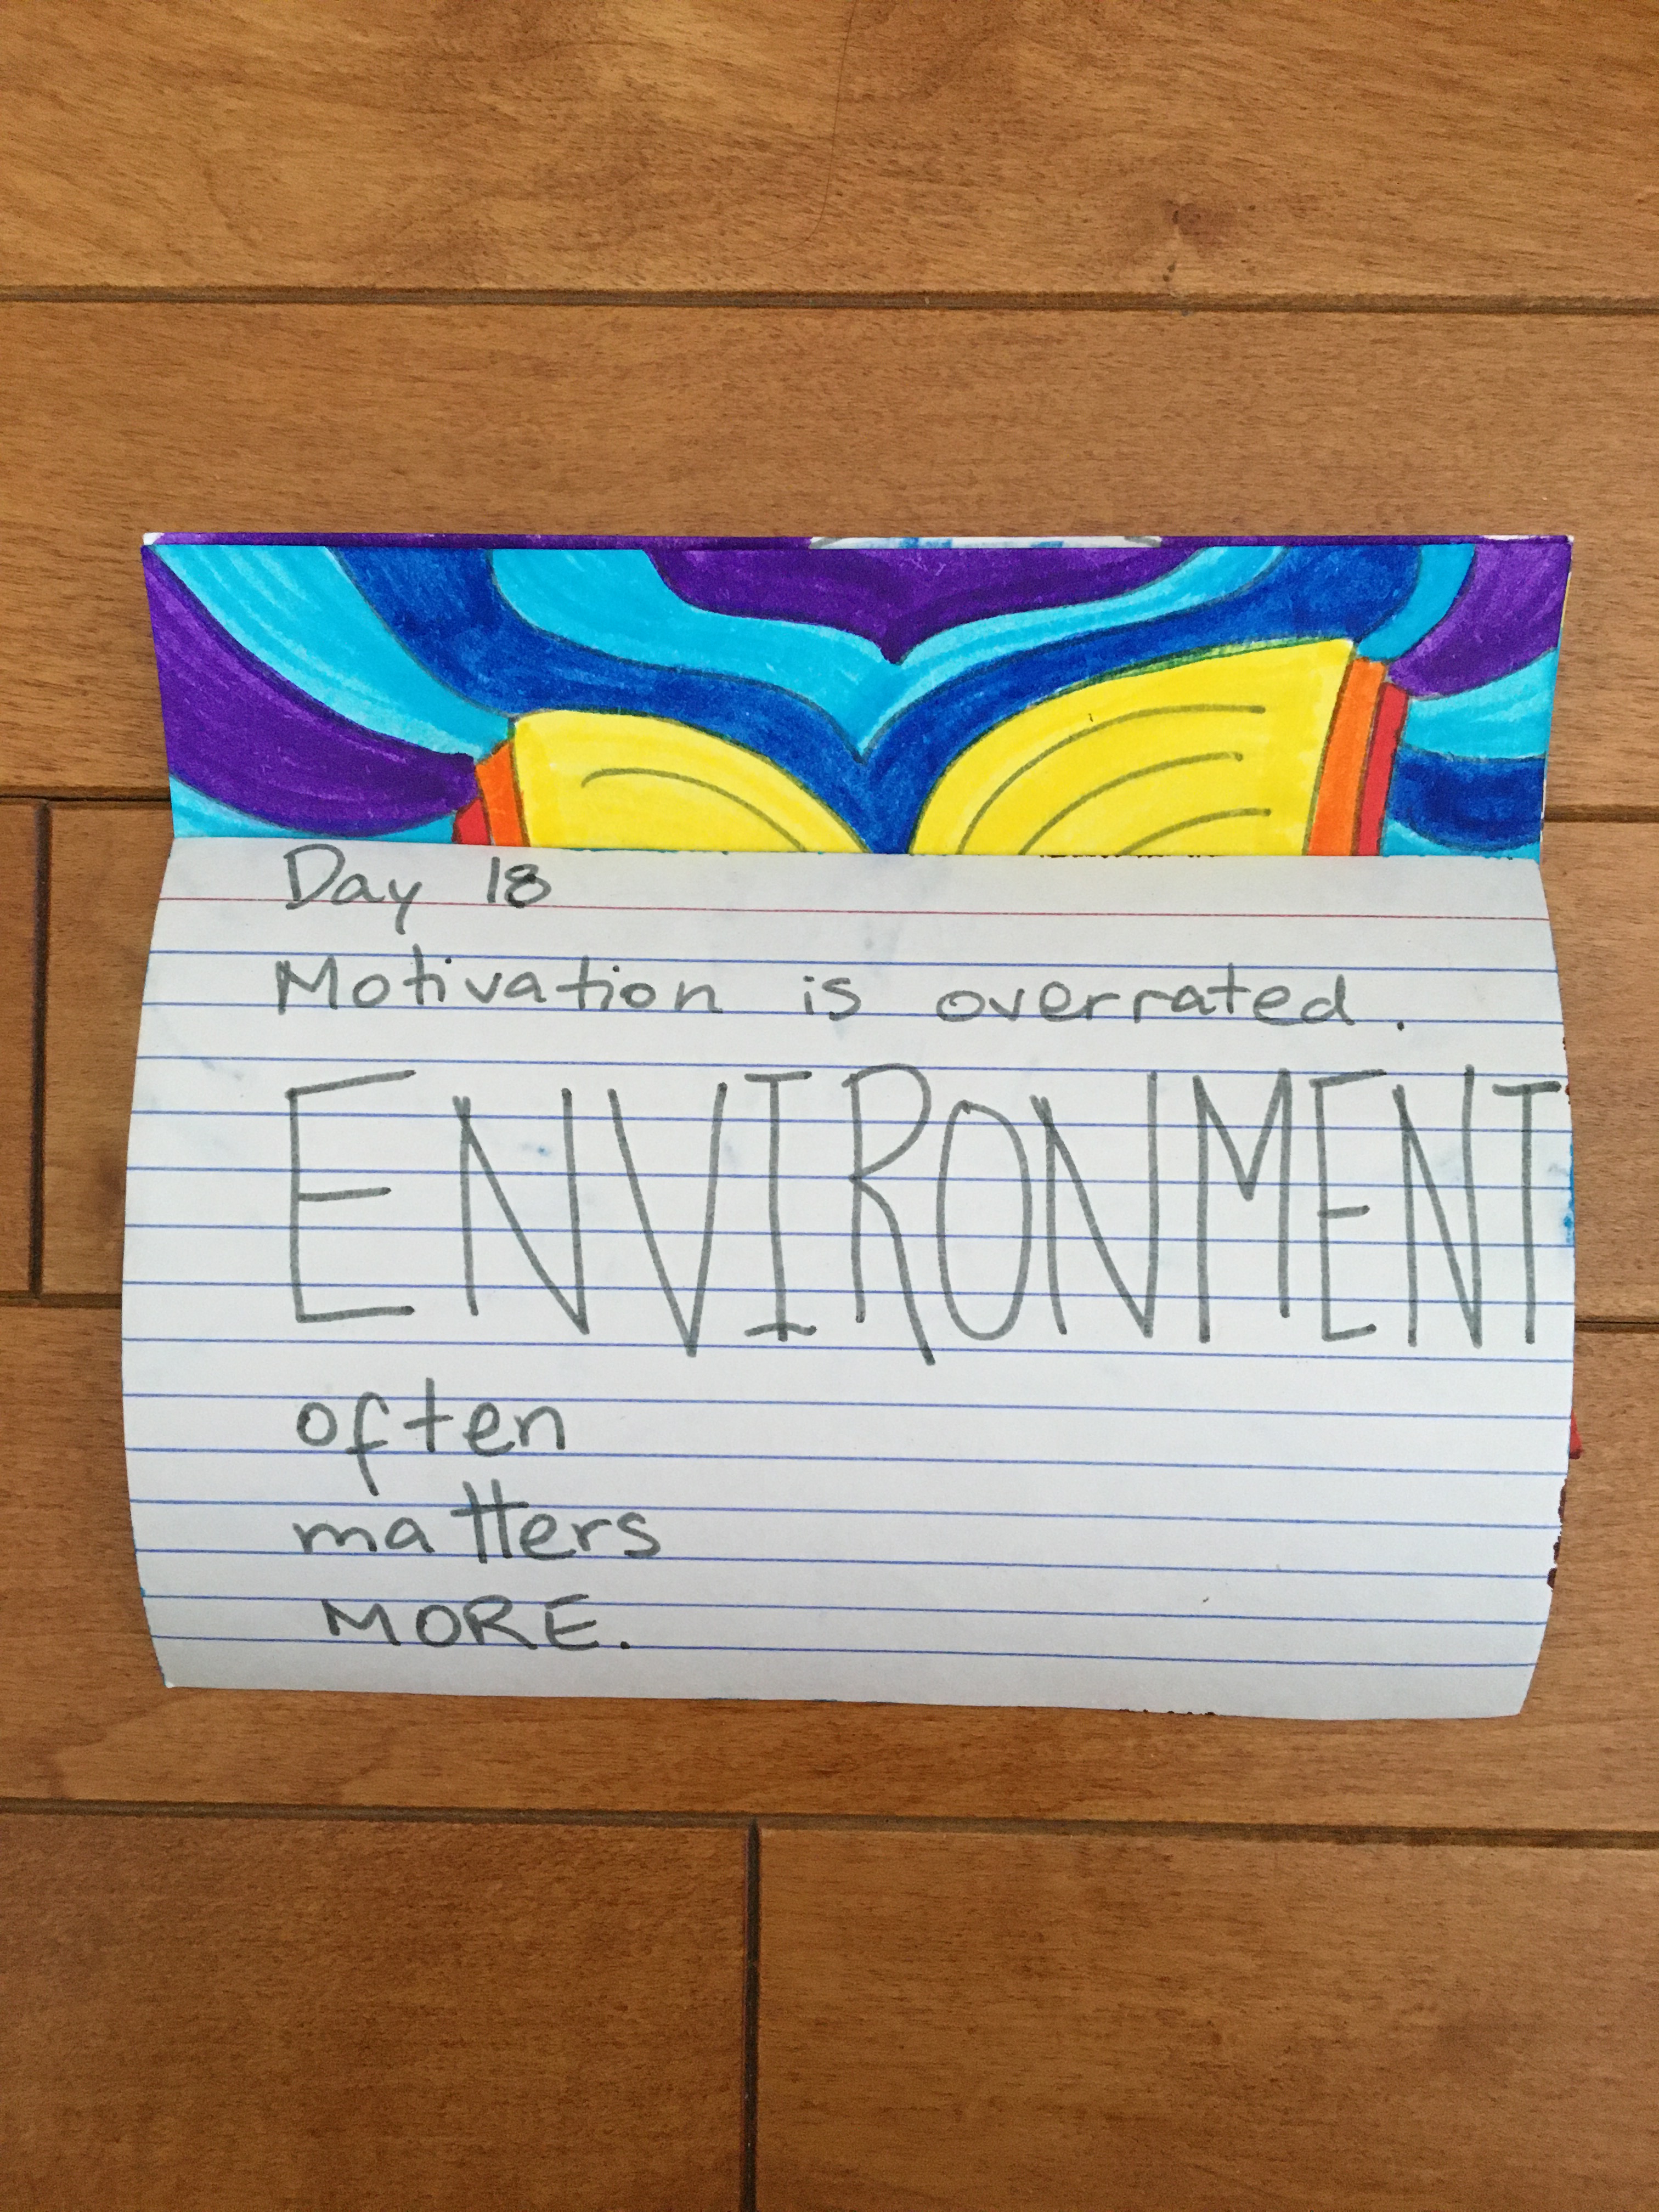 Day 18
Motivation is overrated.
ENVIRONMENT
often
matters
MORE.